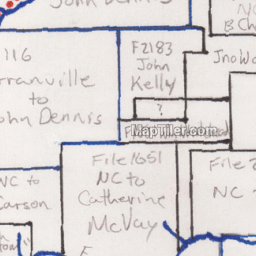 John Dennis
NC
B Ch
116
rranville
to
ohn Dennis
F2183
John
Kelly
Jno Wo
?
F
MapTiler.com
File 1651
NC to
Catherine
McVay
NC to
Carson
File 2
NC